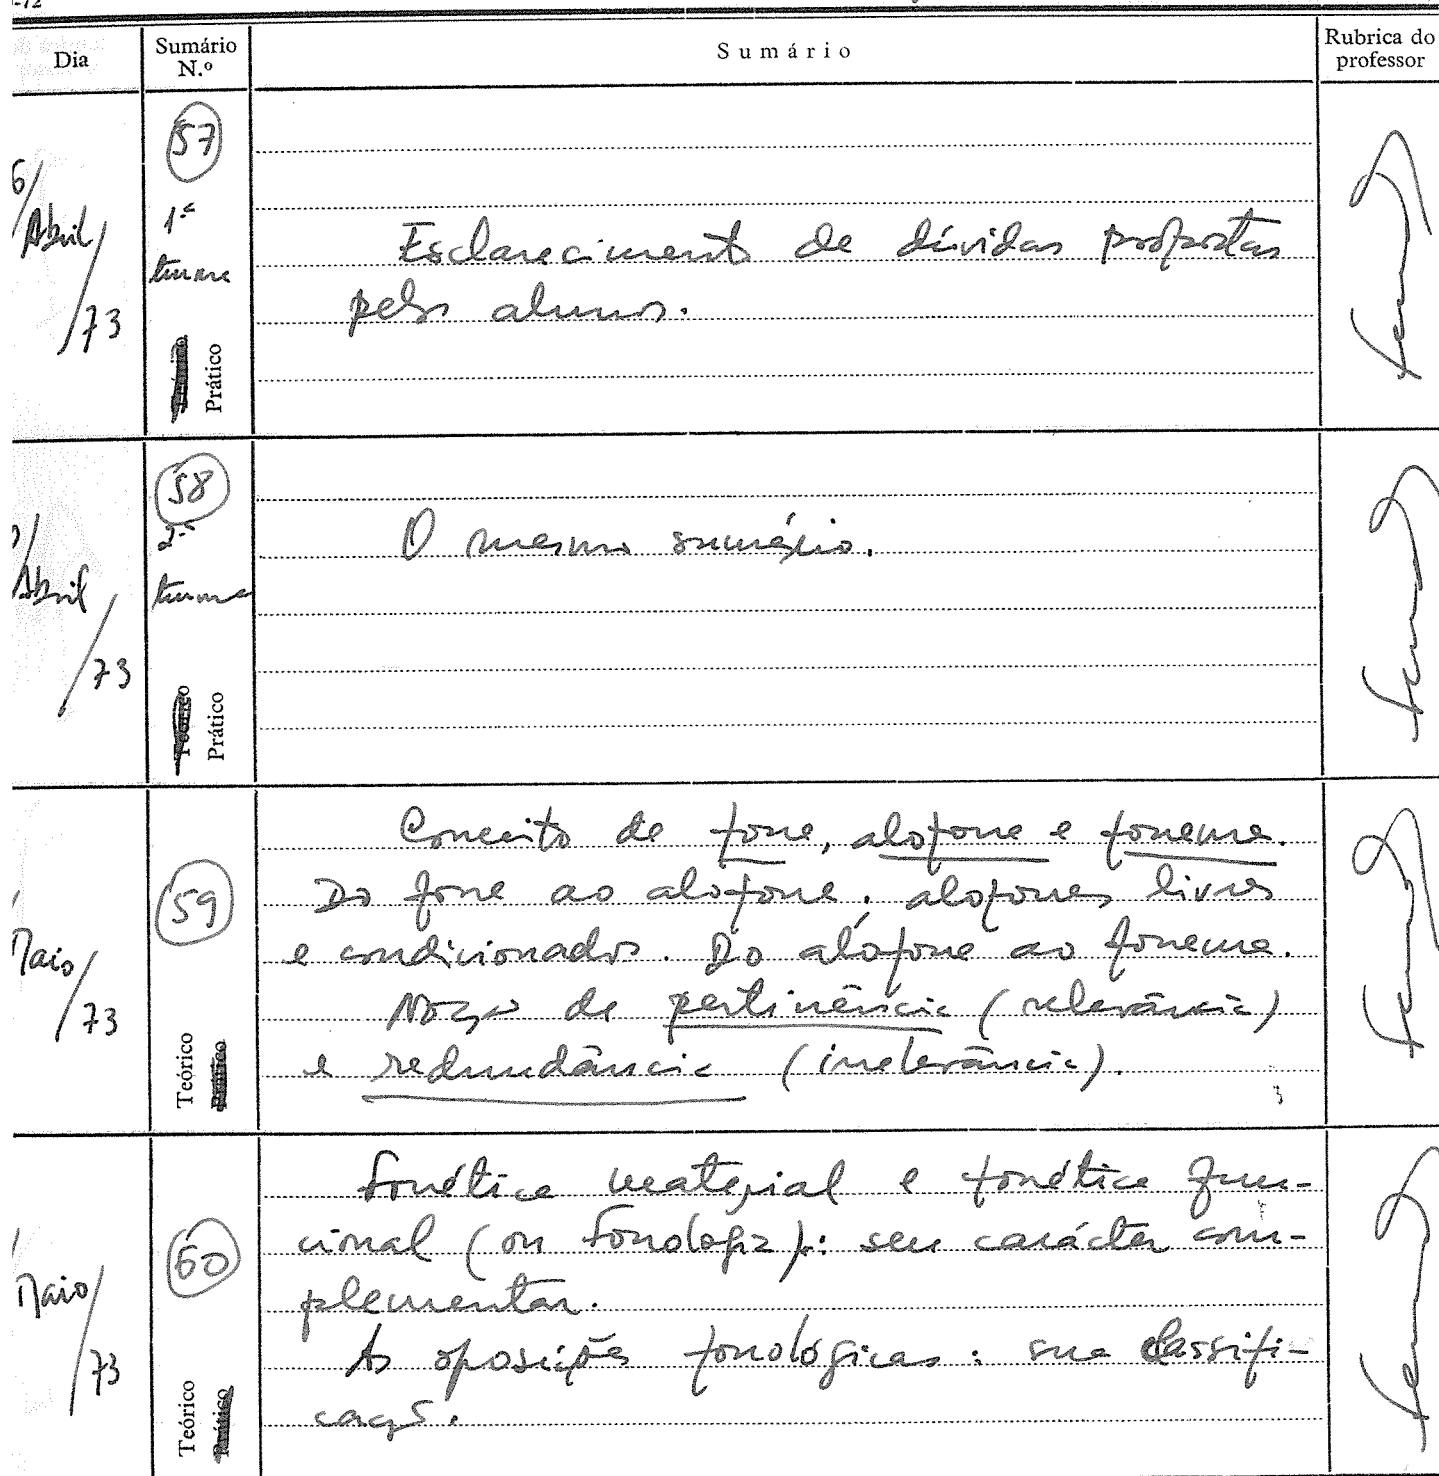 -72
Dia
Sumário
N.º
Sumário
Rubrica do
professor
6/
Abril/
/73
57
1ª
turma
Prático
Esclarecimento de dúvidas propostas
pelos alunos.
Abril
/73
58
2ª
turma
Teórico
Prático
O mesmo sumário.
Maio/
/73
59
Teórico
Prático
Conceito de fone, alofone e fonema.
Do fone ao alofone; alofones livres
e condicionados. Do alofone ao fonema.
Noção de pertinência (relevância)
e redundância (irrelevância).
Maio/
/73
60
Teórico
Prático
Fonética material e fonética fun-
cional (ou fonologia): seu carácter com-
plementar.
As oposições fonológicas: sua classifi-
cação.